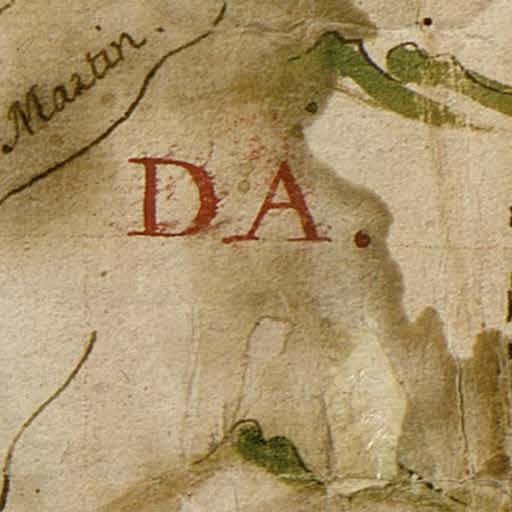 Martin.
DA.